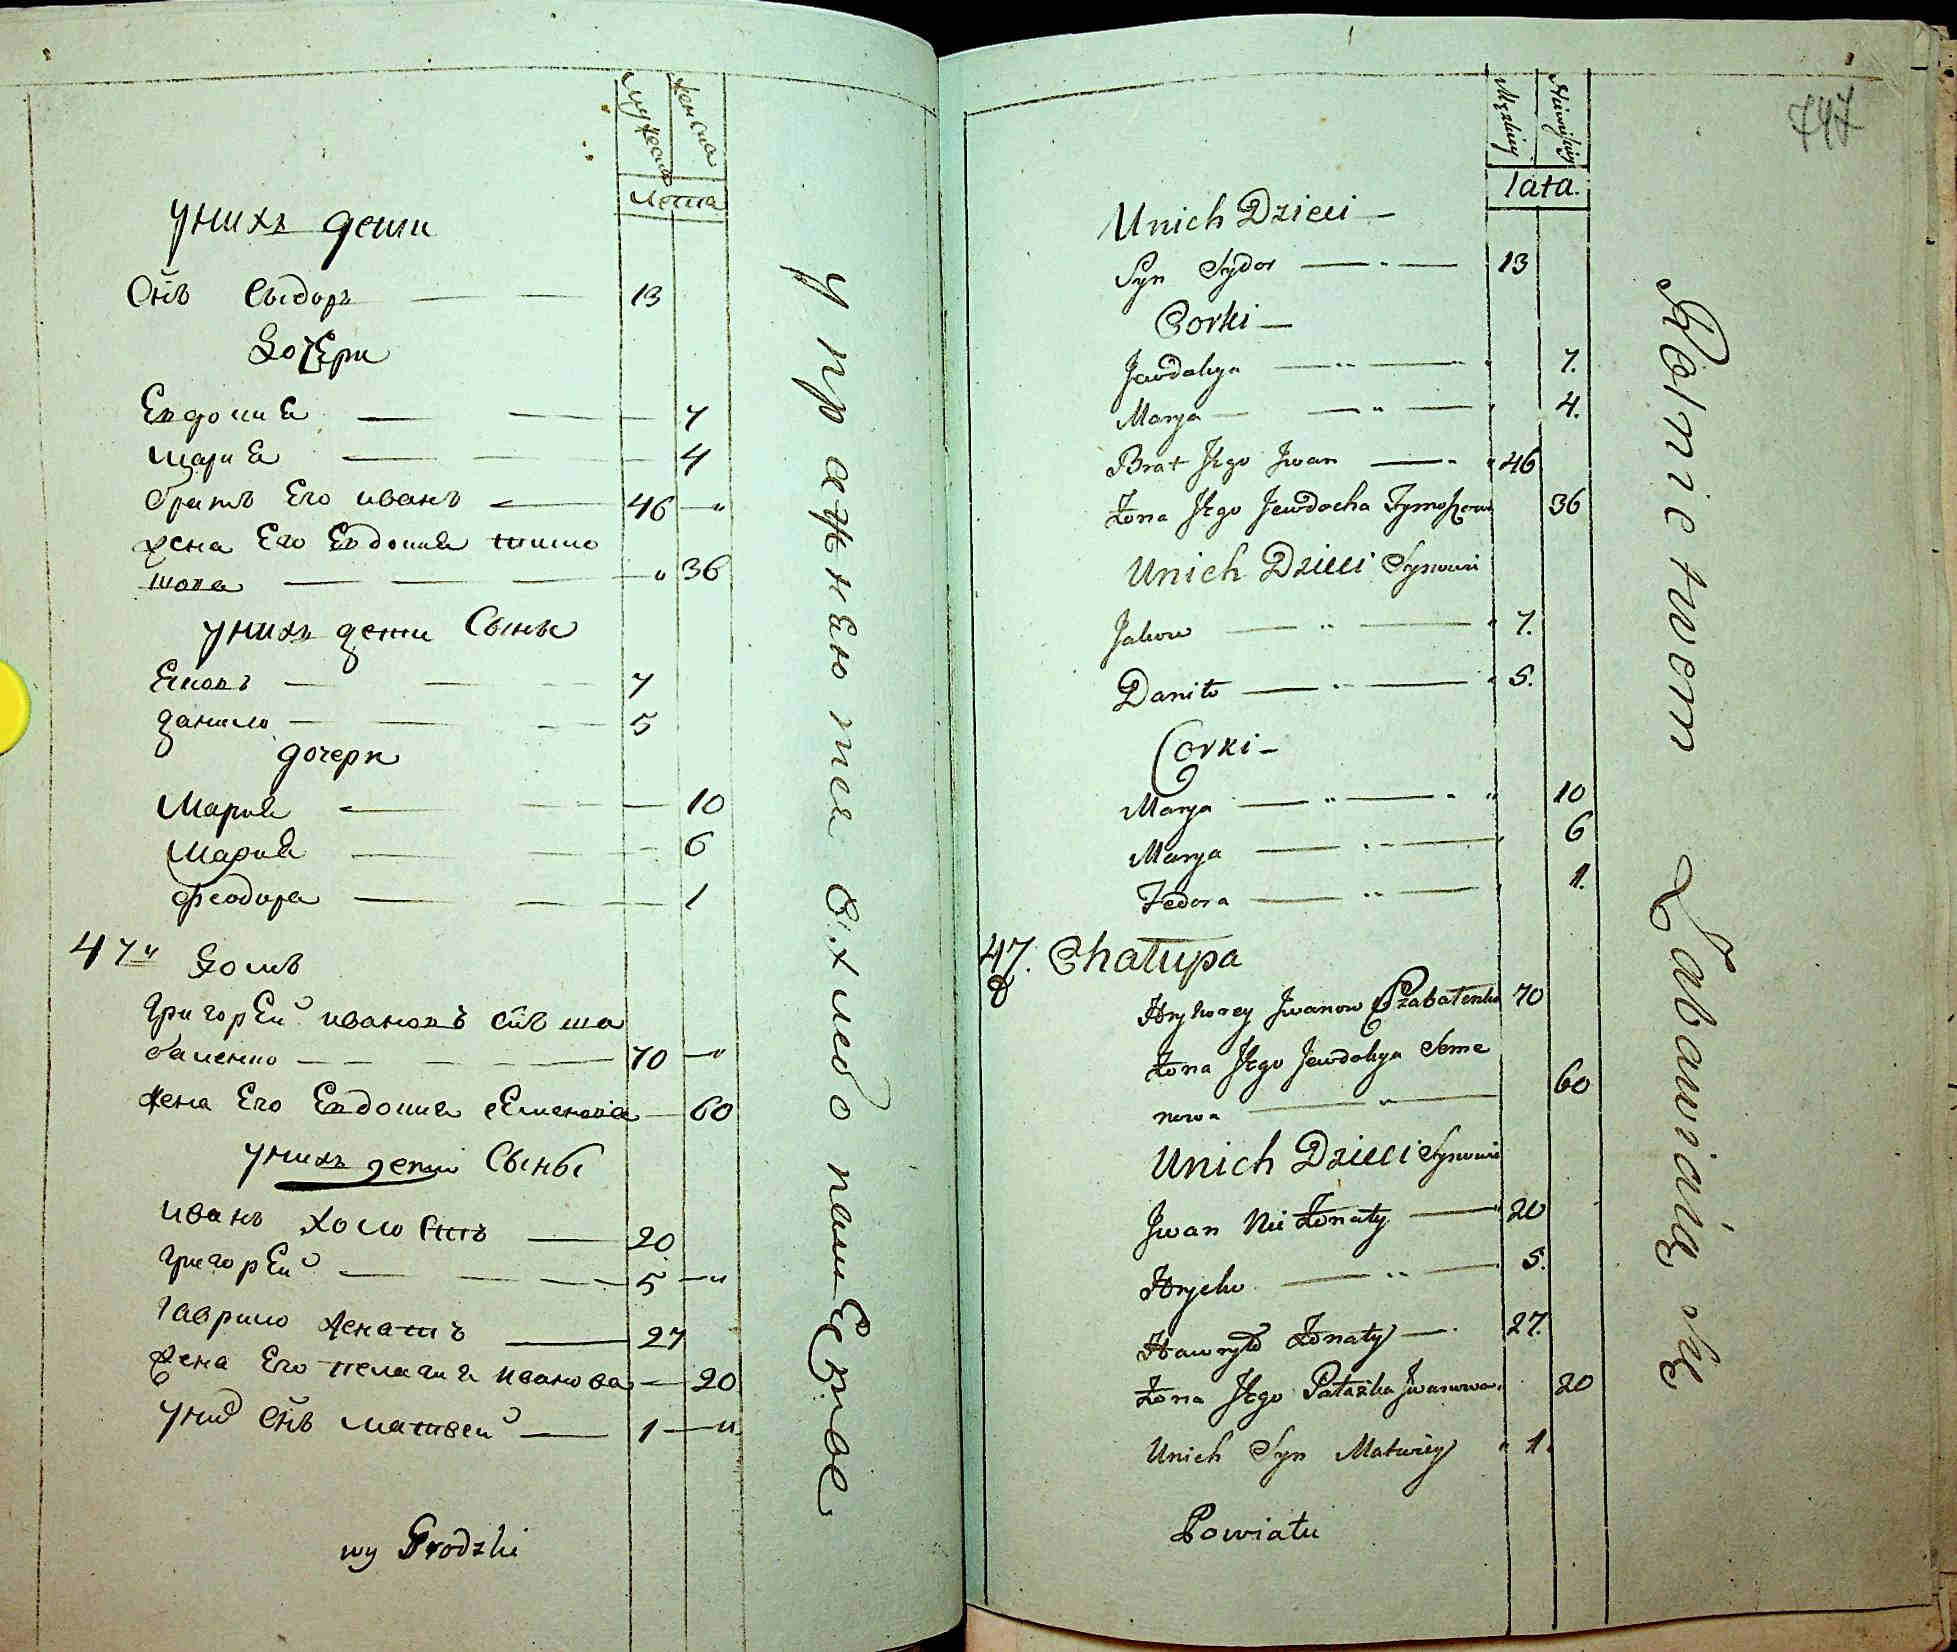 мужеска женска
лета
У нихъ дети
Снъ Сыдоръ 13
Дочери
Евдокиа 7
Мариа 4
братъ Его иванъ 46
жена Его Евдокиа тимо
шова 36
У нихъ дети Сыны
Яковъ 7
данило 5
дочери
Мариа 10
Мариа 6
феодора 1
47й Домъ
Григорей ивановъ снъ ша
баленко 70
жена Его Евдокиа Семенова 60
У нихъ дети Сыны
иванъ холостъ 20
Григорей 5
Гаврило женатъ 27
жена Его пелагиа иванова 20
У них снъ матвей 1
wy Grodzki
упражняются в хлебопашестве
747
Męzkiey Niewieskiey
lata.
Unich Dzieci
Syn Sydor 13
Corki
Jewdokya 7.
Marya 4.
Brat Jego Jwan 46
Żona Jego Jewdocha Tymoszowa 36
Unich Dzieci Synowie
Jakow 7.
Daniło 5.
Corki
Marya 10
Marya 6
Fedora 1.
47. Chałupa
Hryhorey Jwanow Szabałenko 70
Żona Jego Jewdokya Seme
nowa 60
Unich Dzieci Synowie
Jwan Nie Żonaty 20
Hryćko 5.
Hawryło Żonaty 27.
Żona Jego Pałażka Jwanowa 20
Unich Syn Matwiey 1.
Powiatu
Rolnictwem Zabawiaią się